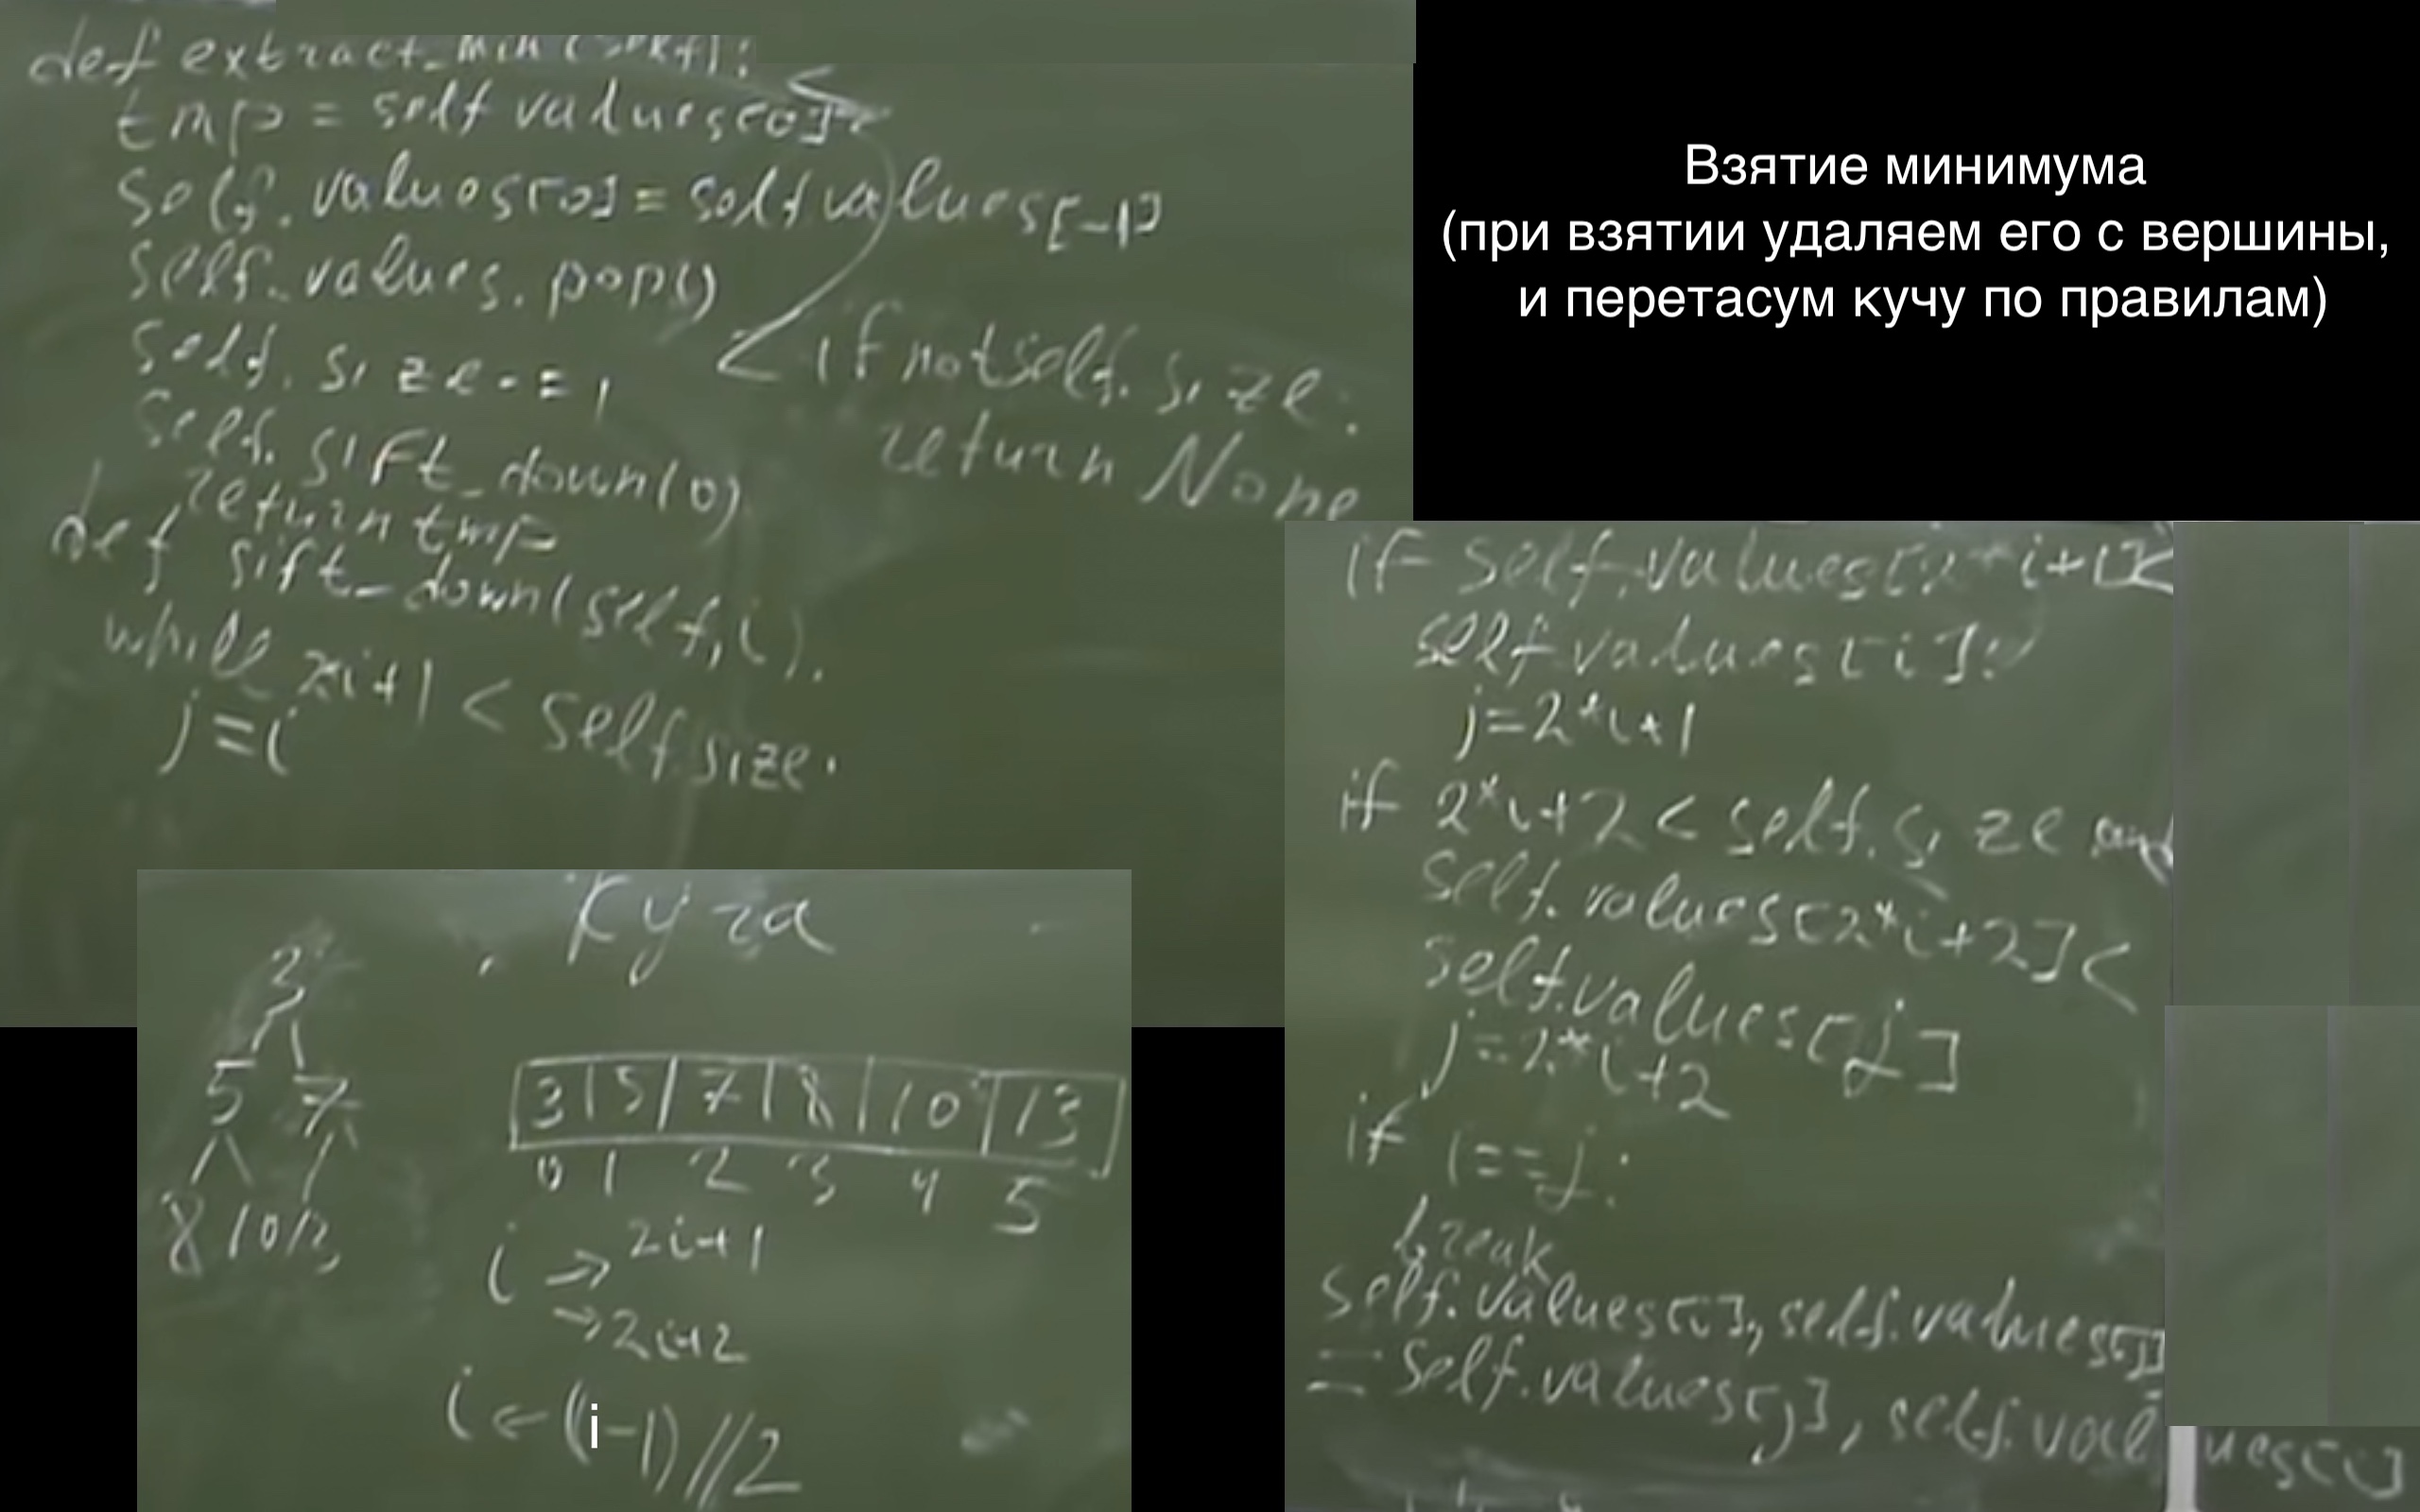 def extract_min(self):
tmp = self values[0]
self. values[0] = self values[-1]
self. values. pop()
self. size -= 1
self. sift_down(0)
return tmp
< if not self. size:
return None
def sift_down(self, i).
while 2*i+1 < self size.
j = i
Взятие минимума
(при взятии удаляем его с вершины,
и перетасум кучу по правилам)
if self.values[2*i+1]<
self values[i]:
j=2*i+1
if 2*i+2 < self. size and
self. values[2*i+2] <
self.values[j]
j=2*i+2
if i==j:
break
self. values[i], self. values[j]
= self.values[j], self. values[i]
Куча
3
5 7
8 10 13
3 | 5 | 7 | 8 | 10 | 13
0 1 2 3 4 5
i → 2i+1
→ 2i+2
i ← (i-1)//2